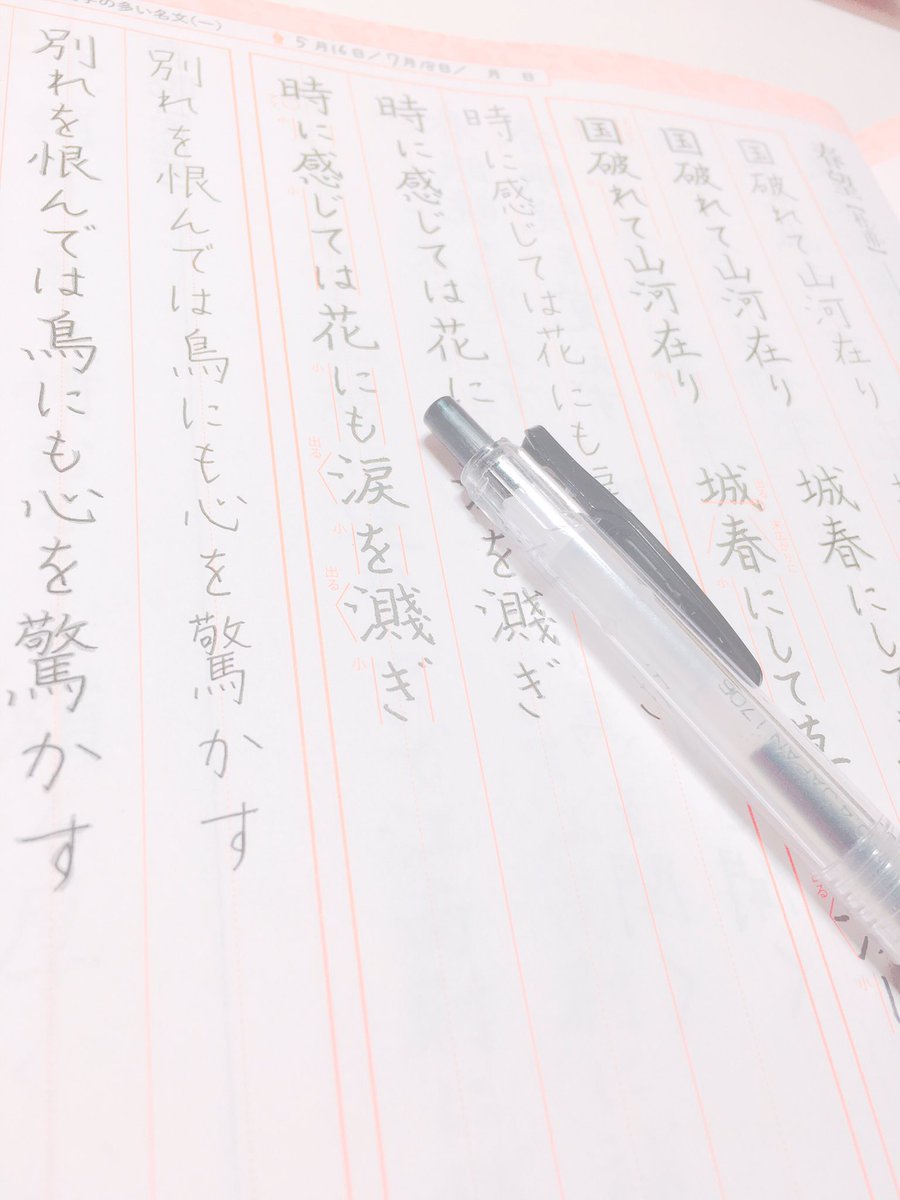 字の多い名文(一)
5月16日/7月18日/ 月 日
春望
国破れて山河在り
国破れて山河在り 城春にして
国破れて山河在り 城春にして
時に感じては花にも涙
時に感じては花に を濺ぎ
時に感じては花にも涙を濺ぎ
出る
小
出る
小
小
別れを恨んでは鳥にも心を驚かす
別れを恨んでは鳥にも心を驚かす
JAPAN 1706